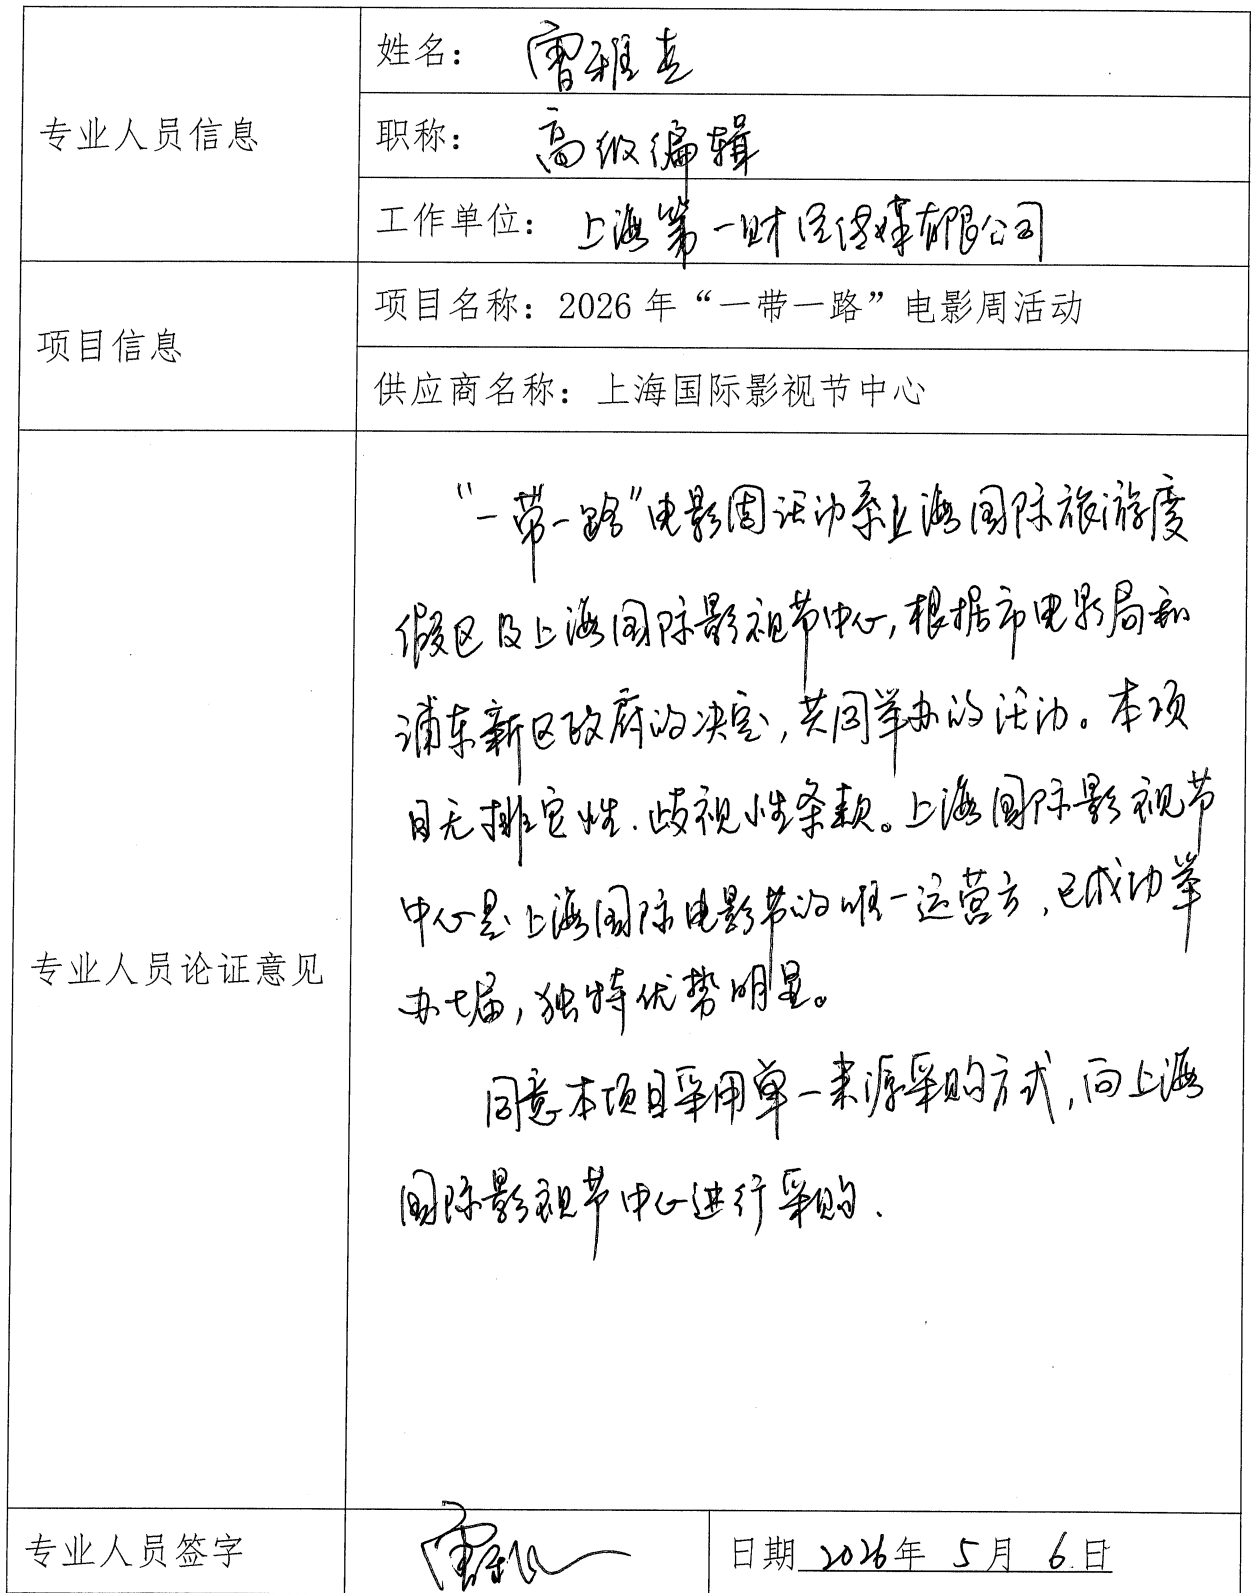 专业人员信息
姓名：雅
职称：高级编辑
工作单位：上海第一财经传媒有限公司
项目信息
项目名称：2026年“一带一路”电影周活动
供应商名称：上海国际影视节中心
专业人员论证意见
“一带一路”电影周活动系上海国际旅游度
假区及上海国际影视节中心，根据市电影局和
浦东新区政府的决定，共同举办的活动。本项
目无排它性、歧视性条款。上海国际影视节
中心是上海国际电影节的唯一运营方，已成功举
办七届，独特优势明显。
同意本项目采用单一来源采购方式，向上海
国际影视节中心进行采购.
专业人员签字
日期 2026年 5月 6日